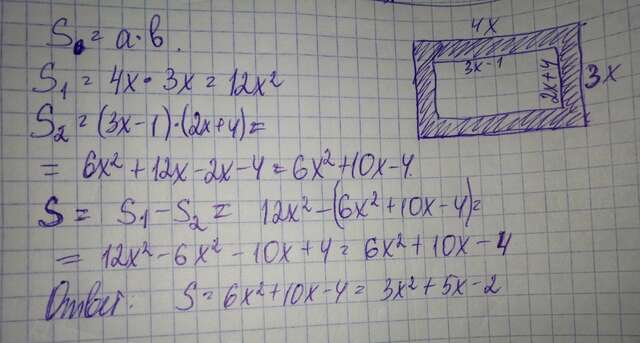 S = a · b.
4x
S₁ = 4x · 3x = 12x²
3x-1
2x+4
3x
S₂ = (3x-1)·(2x+4) =
= 6x² + 12x - 2x - 4 = 6x² + 10x - 4.
S = S₁ - S₂ = 12x² - (6x² + 10x - 4) =
= 12x² - 6x² - 10x + 4 = 6x² + 10x - 4
Ответ: S = 6x² + 10x - 4 = 3x² + 5x - 2